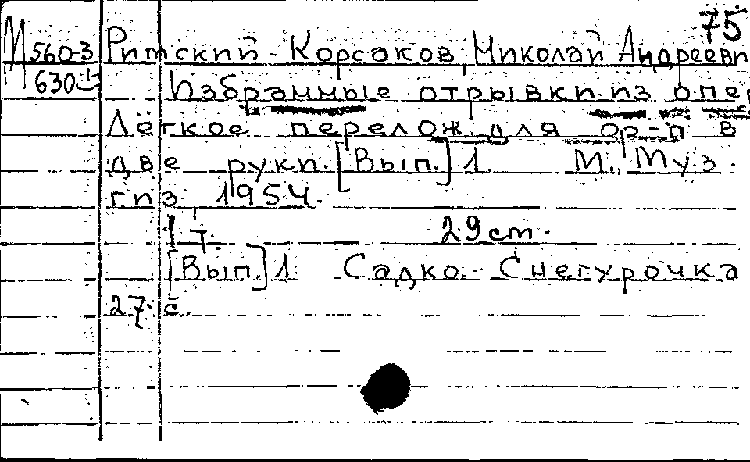 75
М 560-3 Римский-Корсаков, Николай Андреевич
630
Избранные отрывки из опер
Лёгкое перелож. для ф-п в
две руки. [Вып.] 1 М., Муз.
гиз, 1954.
1 т. 29 cm.
[Вып.] 1 Садко. Снегурочка
27 с.